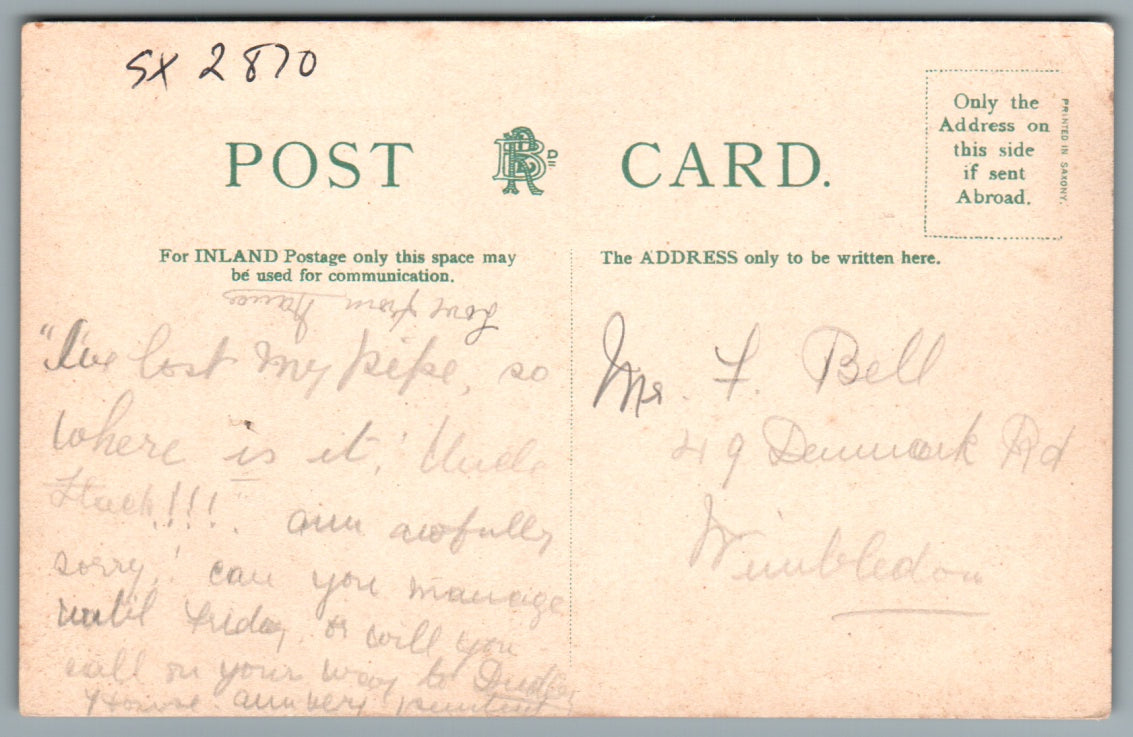 SX 2870
POST CARD.
Only the
Address on
this side
if sent
Abroad.
PRINTED IN SAXONY.
For INLAND Postage only this space may
be used for communication.
The ADDRESS only to be written here.
Love from
"I've lost my pipe, so
where is it,! Uncle
!!!. am awfully
sorry,! can you manage
until Friday, or will you
call on your way to
House. am very
Mr. F. Bell
49 Denmark Rd
Wimbledon